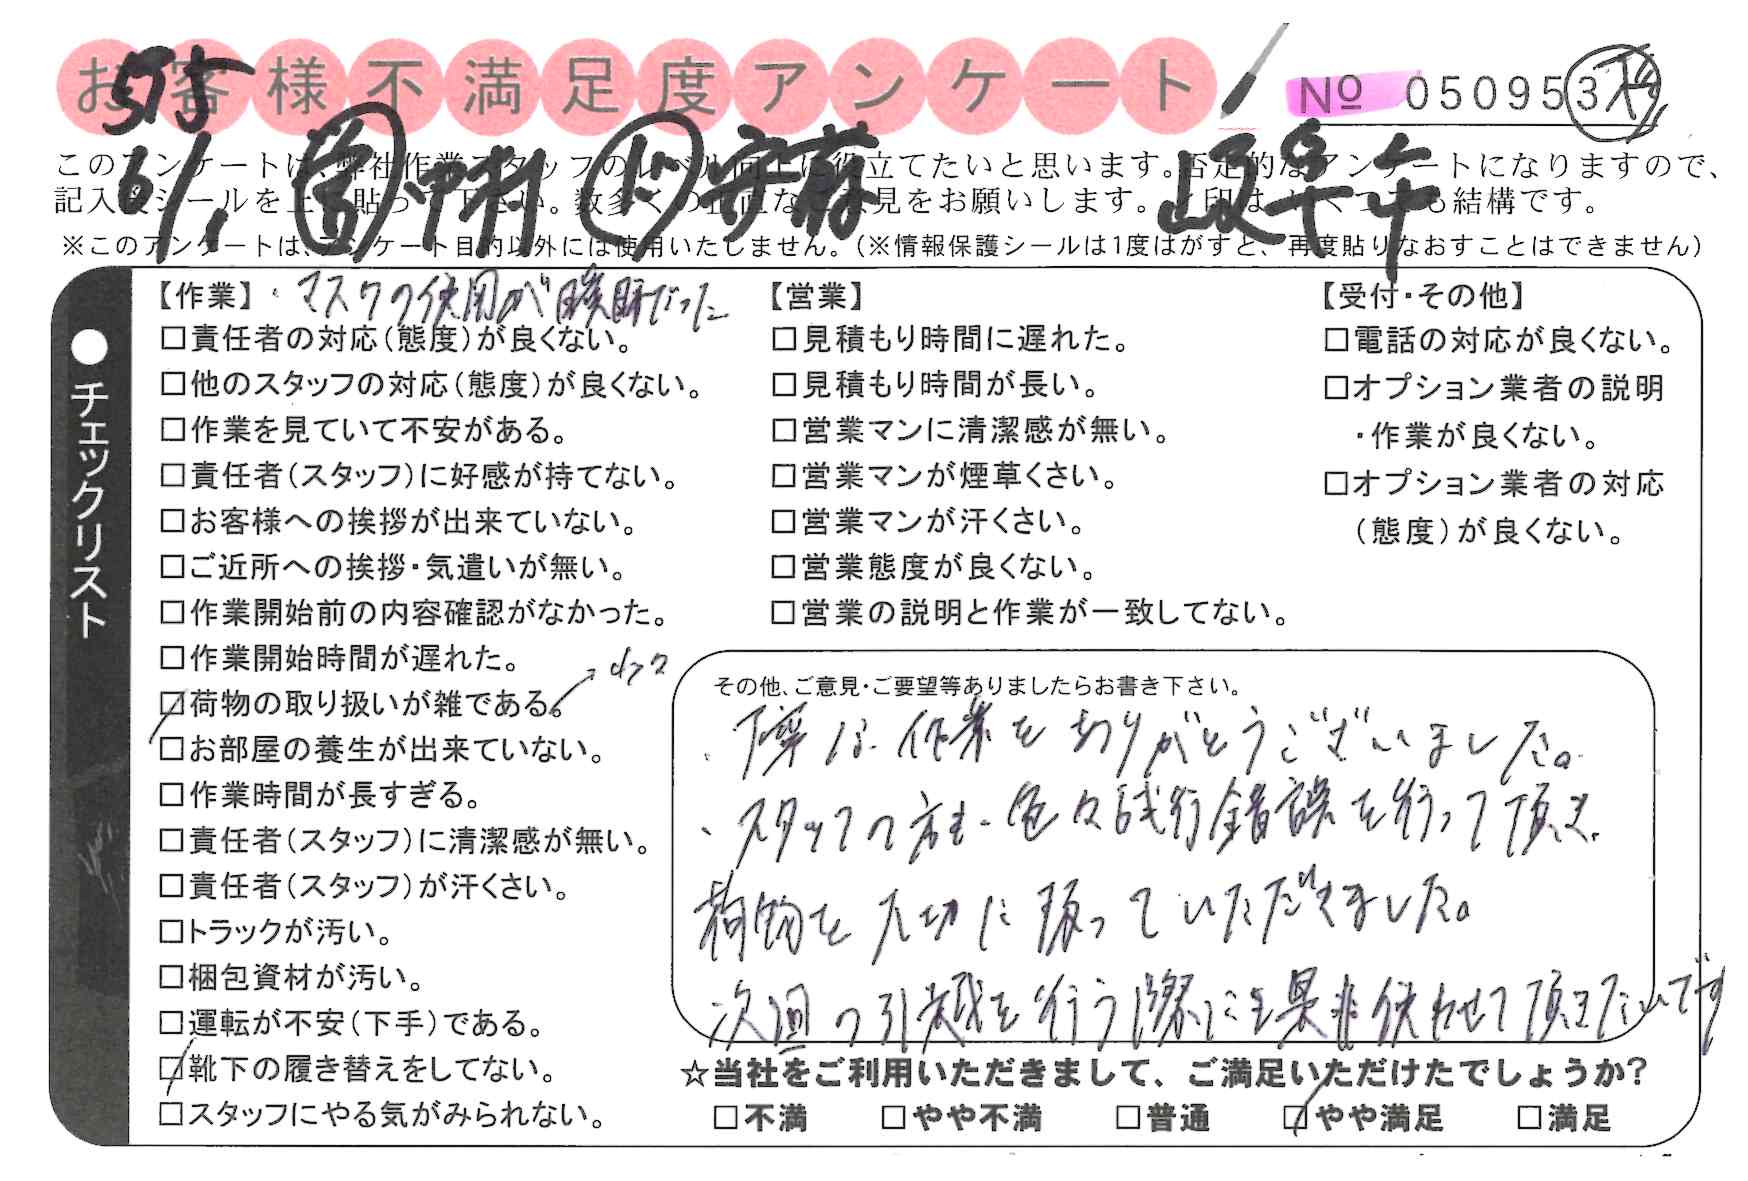 お客様不満足度アンケート
№ 050953
このアンケートは、弊社作業スタッフのレベル向上に役立てたいと思います。否定的なアンケートになりますので、
記入後シールを上に貼って下さい。数多くの正直なご意見をお願いします。
結構です。
※このアンケートは、アンケート目的以外には使用いたしません。(※情報保護シールは1度はがすと、再度貼りなおすことはできません)
6/1
●チェックリスト
【作業】・マスクの使用が曖昧だった
□責任者の対応(態度)が良くない。
□他のスタッフの対応(態度)が良くない。
□作業を見ていて不安がある。
□責任者(スタッフ)に好感が持てない。
□お客様への挨拶が出来ていない。
□ご近所への挨拶・気遣いが無い。
□作業開始前の内容確認がなかった。
□作業開始時間が遅れた。
□荷物の取り扱いが雑である。
□お部屋の養生が出来ていない。
□作業時間が長すぎる。
□責任者(スタッフ)に清潔感が無い。
□責任者(スタッフ)が汗くさい。
□トラックが汚い。
□梱包資材が汚い。
□運転が不安(下手)である。
□靴下の履き替えをしてない。
□スタッフにやる気がみられない。
【営業】
□見積もり時間に遅れた。
□見積もり時間が長い。
□営業マンに清潔感が無い。
□営業マンが煙草くさい。
□営業マンが汗くさい。
□営業態度が良くない。
□営業の説明と作業が一致してない。
【受付・その他】
□電話の対応が良くない。
□オプション業者の説明
・作業が良くない。
□オプション業者の対応
(態度)が良くない。
その他、ご意見・ご要望等ありましたらお書き下さい。
・丁寧な作業をありがとうございました。
・スタッフの方も色々試行錯誤を行って頂き、
荷物を大切に扱っていただきました。
次回の引越を行う際にも是非使わせて頂きたいです
☆当社をご利用いただきまして、ご満足いただけたでしょうか?
□不満 □やや不満 □普通 □やや満足 □満足